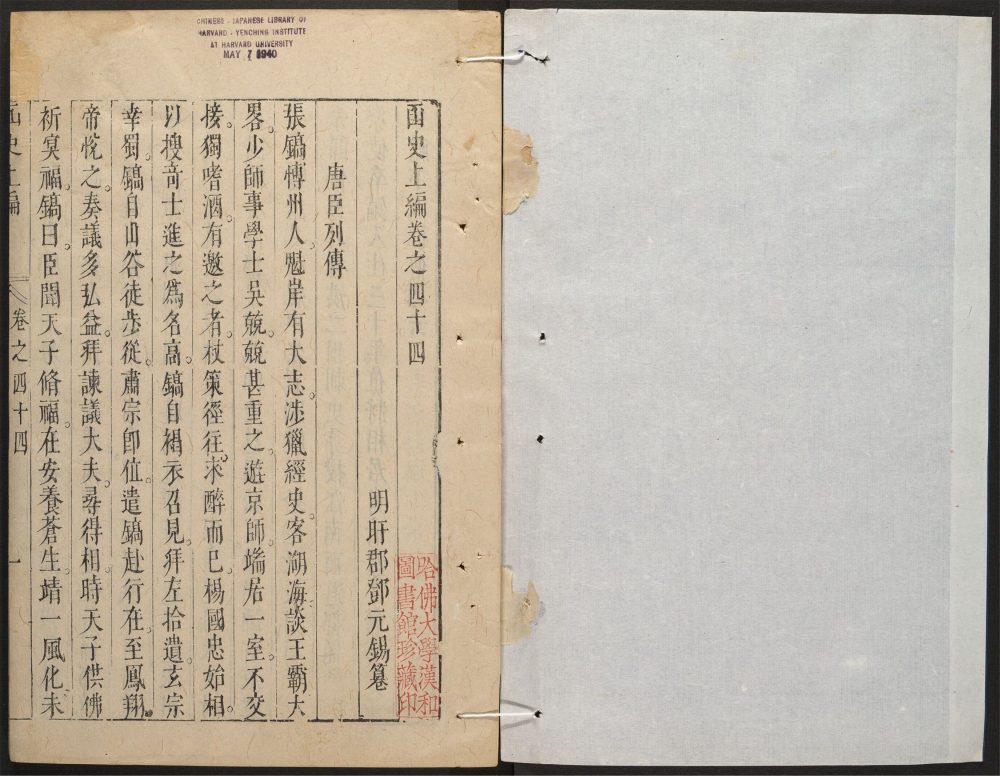 CHINESE - JAPANESE LIBRARY OF
HARVARD - YENCHING INSTITUTE
AT HARVARD UNIVERSITY
MAY 7 1940
函史上編卷之四十四
明盱郡鄧元錫纂
哈佛大學漢和
圖書館珍藏印
唐臣列傳
張鎬愽州人魁岸有大志涉獵經史客湖海談王霸大
畧少師事學士吳兢兢甚重之遊京師端居一室不交
接獨嗜酒有邀之者杖策徑往求醉而已楊國忠始相
以搜竒士進之爲名高鎬自褐衣召見拜左拾遺玄宗
幸蜀鎬自山谷徒步從肅宗卽位遣鎬赴行在至鳳翔
帝悅之奏議多弘益拜諫議大夫尋得相時天子供佛
祈冥福鎬曰臣聞天子脩福在安養蒼生靖一風化未
函史上編
卷之四十四
一